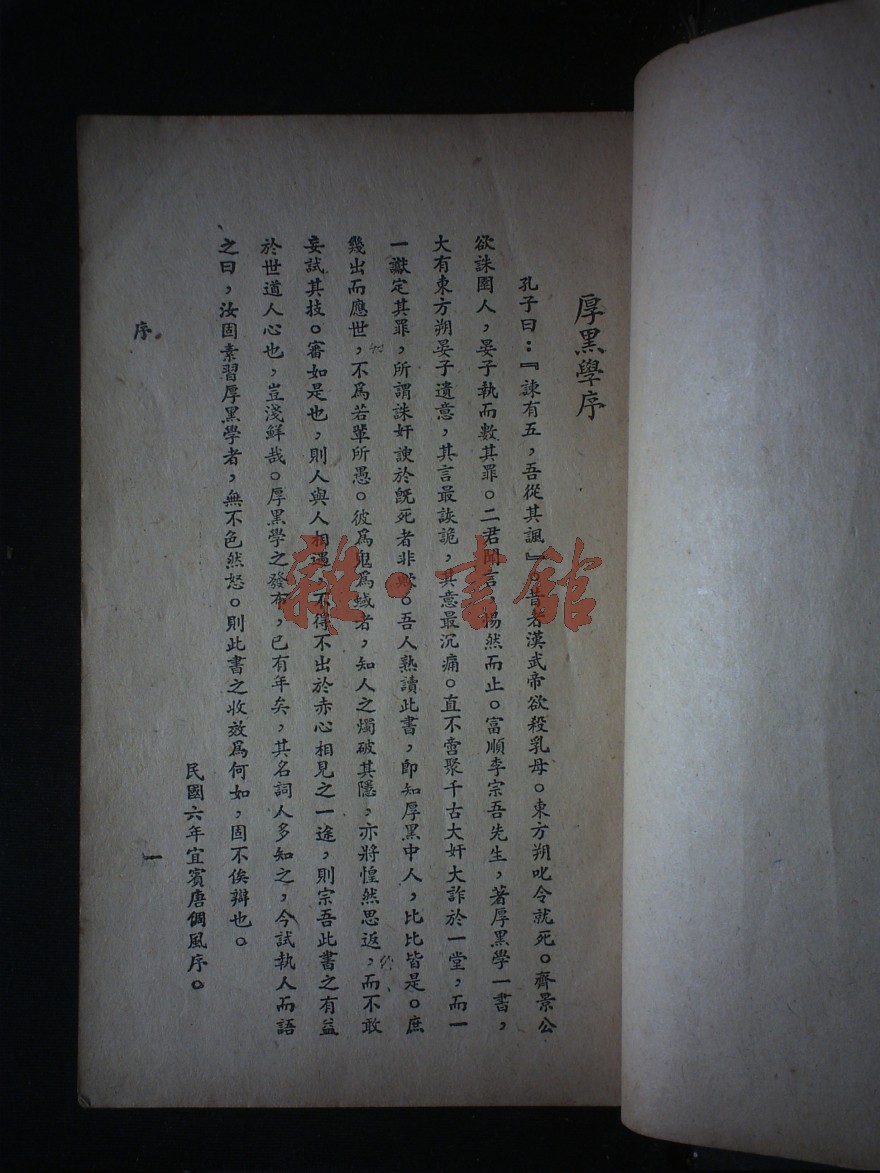 厚黑學序
孔子曰：『諫有五，吾從其諷』。昔者漢武帝欲殺乳母。東方朔叱令就死。齊景公
欲誅圉人，晏子執而數其罪。二君聞言，惕然而止。富順李宗吾先生，著厚黑學一書，
大有東方朔晏子遺意，其言最詼詭，其意最沉痛。直不啻聚千古大奸大詐於一堂，而一
一讞定其罪，所謂誅奸諛於既死者非歟。吾人熟讀此書，即知厚黑中人，比比皆是。庶
幾出而應世，不爲若輩所愚。彼爲鬼爲蜮者，知人之燭破其隱，亦將惶然思返，而不敢
妄試其技。審如是也，則人與人相遇，不得不出於赤心相見之一途，則宗吾此書之有益
於世道人心也，豈淺鮮哉。厚黑學之發布，已有年矣，其名詞人多知之，今試執人而語
之曰，汝固素習厚黑學者，無不色然怒。則此書之收效爲何如，固不俟辯也。
民國六年宜賓唐倜風序。
序
一
雜·書館